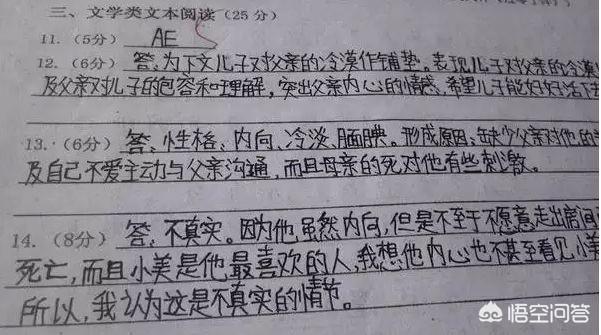 三、文学类文本阅读(25分)
11.(5分) AE
12.(6分) 答,为下文儿子对父亲的冷漠作铺垫。表现儿子对父亲的冷漠
及父亲对儿子的包容和理解,突出父亲内心的情感,希望儿子能好好活下去
13.(6分) 答,性格、内向、冷淡、腼腆。形成原因:缺少父亲对他的
及自己不爱主动与父亲沟通,而且母亲的死对他有些刺激。
14.(8分) 答,不真实。因为他虽然内向,但是不至于不愿意走出房间
死亡,而且小美是他最喜欢的人,我想他内心也不甚至看见小美
所以,我认为这是不真实的情节。
悟空问答